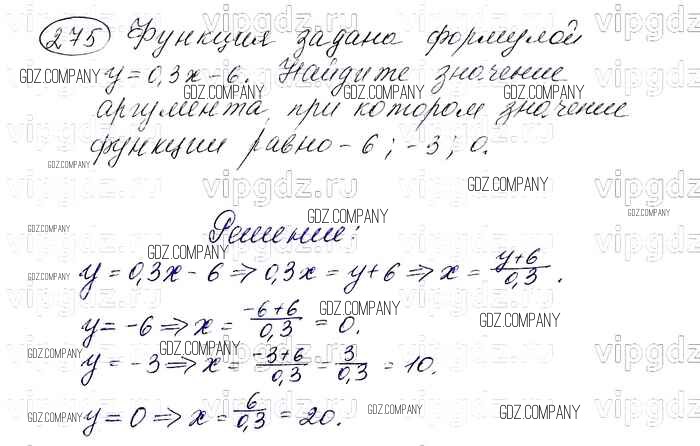 275 Функция задана формулой
y = 0,3x - 6. Найдите значение
аргумента, при котором значение
функции равно - 6 ; - 3 ; 0.
Решение:
y = 0,3x - 6 ⇒ 0,3x = y + 6 ⇒ x = (y+6)/0,3 .
y = -6 ⇒ x = (-6+6)/0,3 = 0.
y = -3 ⇒ x = (-3+6)/0,3 = 3/0,3 = 10.
y = 0 ⇒ x = 6/0,3 = 20.
GDZ.COMPANY
vipgdz.ru